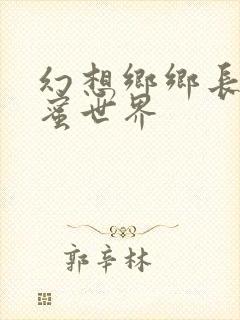 幻想鄉鄉長
蜜世界
郭辛林